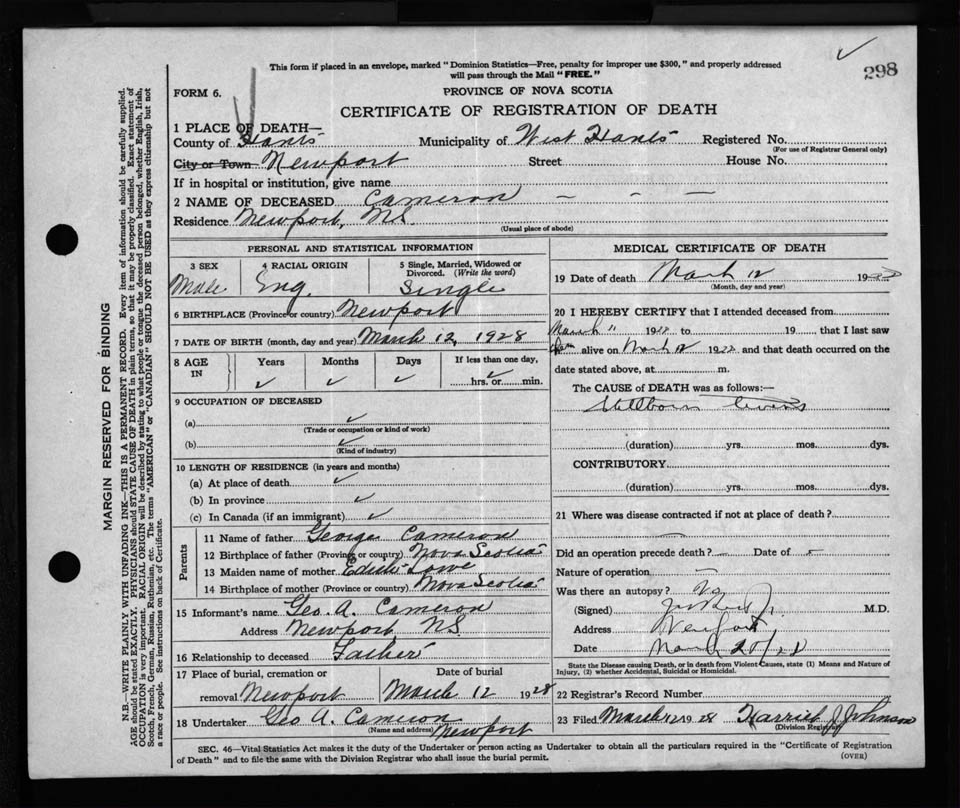 298
This form if placed in an envelope, marked "Dominion Statistics—Free, penalty for improper use $300," and properly addressed
will pass through the Mail "FREE."
FORM 6.
PROVINCE OF NOVA SCOTIA
CERTIFICATE OF REGISTRATION OF DEATH
1 PLACE OF DEATH—
County of Hants Municipality of West Hants Registered No.
(For use of Registrar General only)
City or Town Newport Street House No.
If in hospital or institution, give name
2 NAME OF DECEASED Cameron — - —
Residence Newport, NS.
(Usual place of abode)
PERSONAL AND STATISTICAL INFORMATION
3 SEX 4 RACIAL ORIGIN 5 Single, Married, Widowed or
Divorced. (Write the word)
Male Eng. Single
6 BIRTHPLACE (Province or country) Newport
7 DATE OF BIRTH (month, day and year) March 12, 1928
8 AGE IN Years Months Days If less than one day,
hrs. or min.
9 OCCUPATION OF DECEASED
(a)
(Trade or occupation or kind of work)
(b)
(Kind of industry)
10 LENGTH OF RESIDENCE (in years and months)
(a) At place of death
(b) In province
(c) In Canada (if an immigrant)
Parents
11 Name of father George Cameron
12 Birthplace of father (Province or country) Nova Scotia
13 Maiden name of mother Edith Lowe
14 Birthplace of mother (Province or country) Nova Scotia
15 Informant's name Geo. A. Cameron
Address Newport, NS
16 Relationship to deceased Father
17 Place of burial, cremation or Date of burial
removal Newport March 12 1928
18 Undertaker Geo A. Cameron
(Name and address) Newport
MEDICAL CERTIFICATE OF DEATH
19 Date of death March 12 19
(Month, day and year)
20 I HEREBY CERTIFY that I attended deceased from
March 19 to 19 , that I last saw
alive on March 12 19 and that death occurred on the
date stated above, at m.
The CAUSE of DEATH was as follows:—
Stillborn
(duration) yrs. mos. dys.
CONTRIBUTORY
(duration) yrs. mos. dys.
21 Where was disease contracted if not at place of death?
Did an operation precede death? — Date of -
Nature of operation —
Was there an autopsy? No
(Signed) M.D.
Address Newport
Date March 20/28
State the Disease causing Death, or in death from Violent Causes, state (1) Means and Nature of
Injury, (2) whether Accidental, Suicidal or Homicidal.
22 Registrar's Record Number
23 Filed March 12 1928 Harriet J Johnson
(Division Registrar)
SEC. 46—Vital Statistics Act makes it the duty of the Undertaker or person acting as Undertaker to obtain all the particulars required in the "Certificate of Registration
of Death" and to file the same with the Division Registrar who shall issue the burial permit.
(OVER)
MARGIN RESERVED FOR BINDING
N.B.—WRITE PLAINLY WITH UNFADING INK—THIS IS A PERMANENT RECORD. Every item of information should be carefully supplied.
AGE should be stated EXACTLY. PHYSICIANS should STATE CAUSE OF DEATH in plain terms, so that it may be properly classified. Exact statement of
OCCUPATION is very important. RACIAL ORIGIN will be described by stating to what people or tongue the deceased person belonged, whether English, Irish,
Scotch, French, German, Russian, Ruthenian, etc. The terms "AMERICAN" or "CANADIAN" SHOULD NOT BE USED as they express citizenship but not
a race or people. See instructions on back of Certificate.